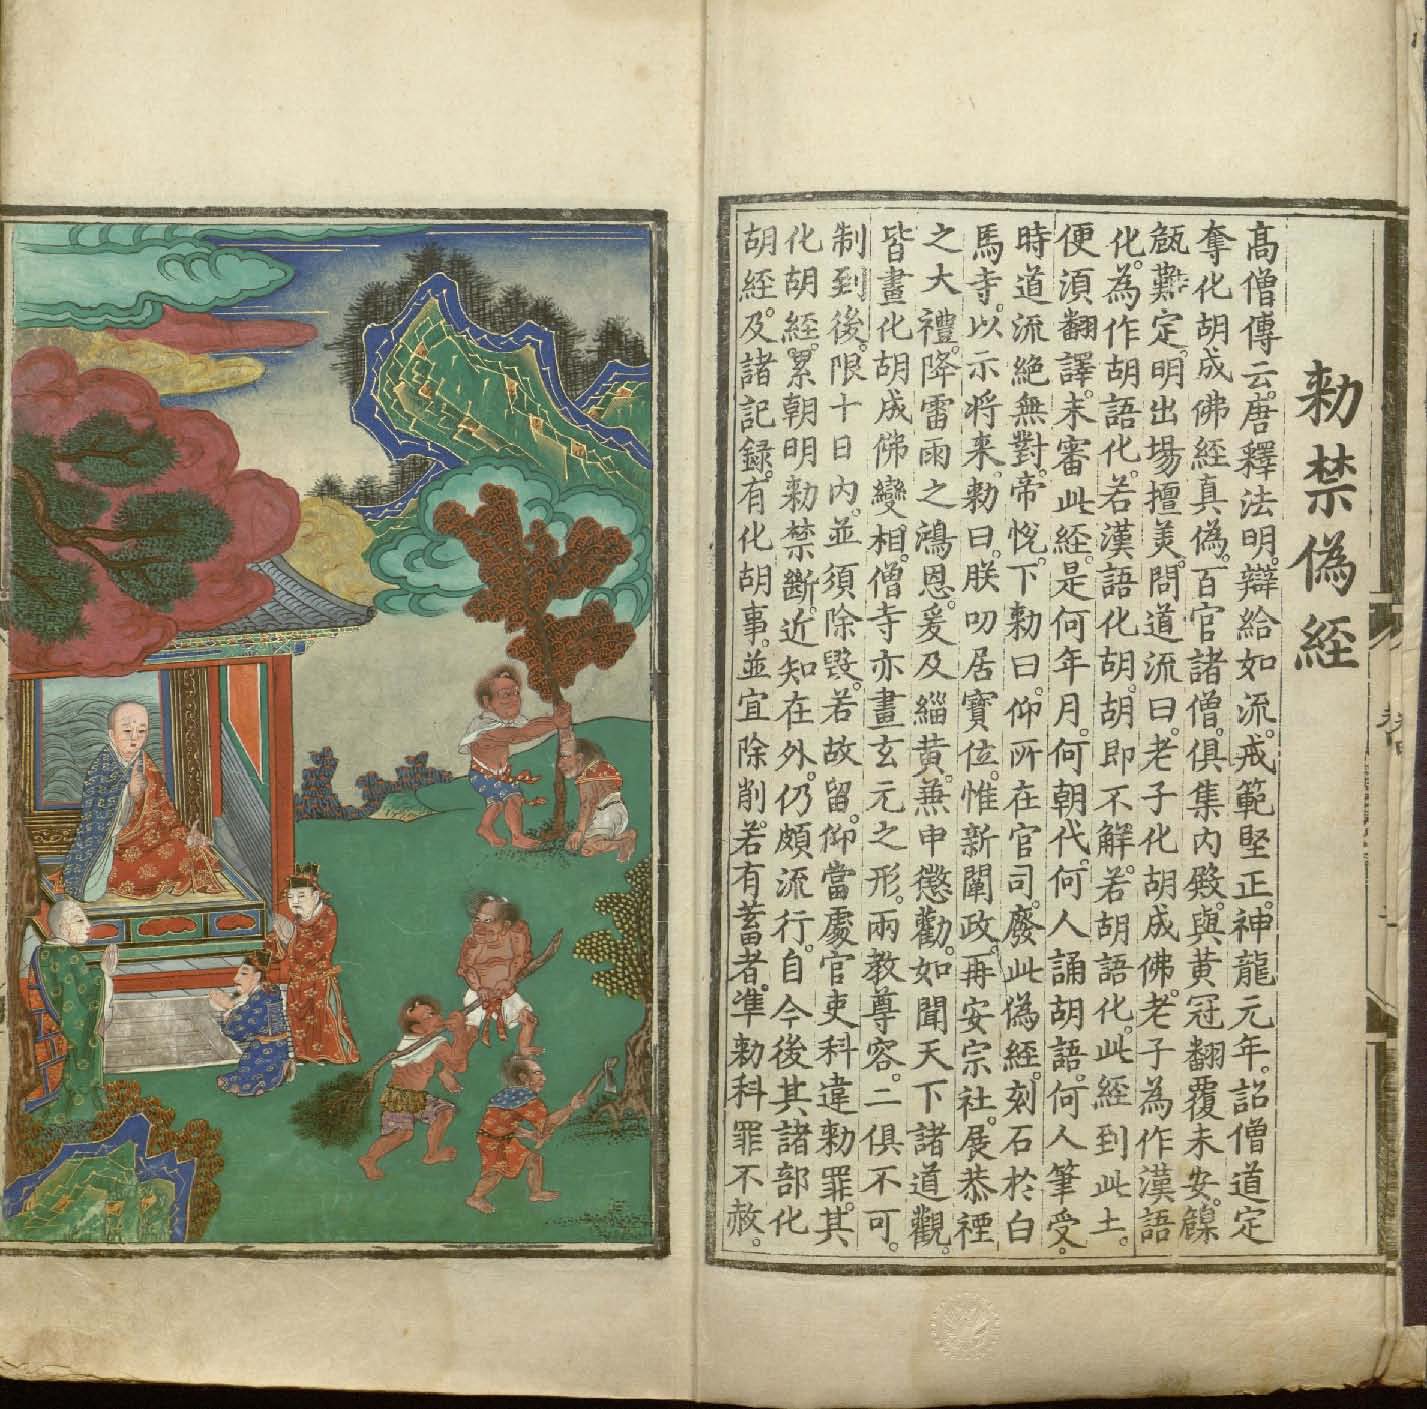 勑禁偽經
高僧傳云。唐釋法明。辯給如流。戒範堅正。神龍元年。詔僧道定
奪化胡成佛經真偽。百官諸僧。俱集內殿。與黃冠翻覆未安。
難定。明出場擅美。問道流曰。老子化胡成佛。老子為作漢語
化。為作胡語化。若漢語化胡。胡即不解。若胡語化。此經到此土。
便須翻譯。未審此經。是何年月。何朝代。何人誦胡語。何人筆受。
時道流絕無對。帝悅。下勑曰。仰所在官司。廢此偽經。刻石於白
馬寺。以示將來。勑曰。朕叨居寶位。惟新闡政。再安宗社。展恭禋
之大禮。降雷雨之鴻恩。爰及緇黃。兼申懲勸。如聞天下諸道觀。
皆畫化胡成佛變相。僧寺亦畫玄元之形。兩教尊容。二俱不可。
制到後。限十日內。並須除毀。若故留。仰當處官吏科違勑罪。其
化胡經。累朝明勑禁斷。近知在外。仍頗流行。自今後其諸部化
胡經。及諸記録。有化胡事。並宜除削。若有蓄者。準勑科罪不赦。